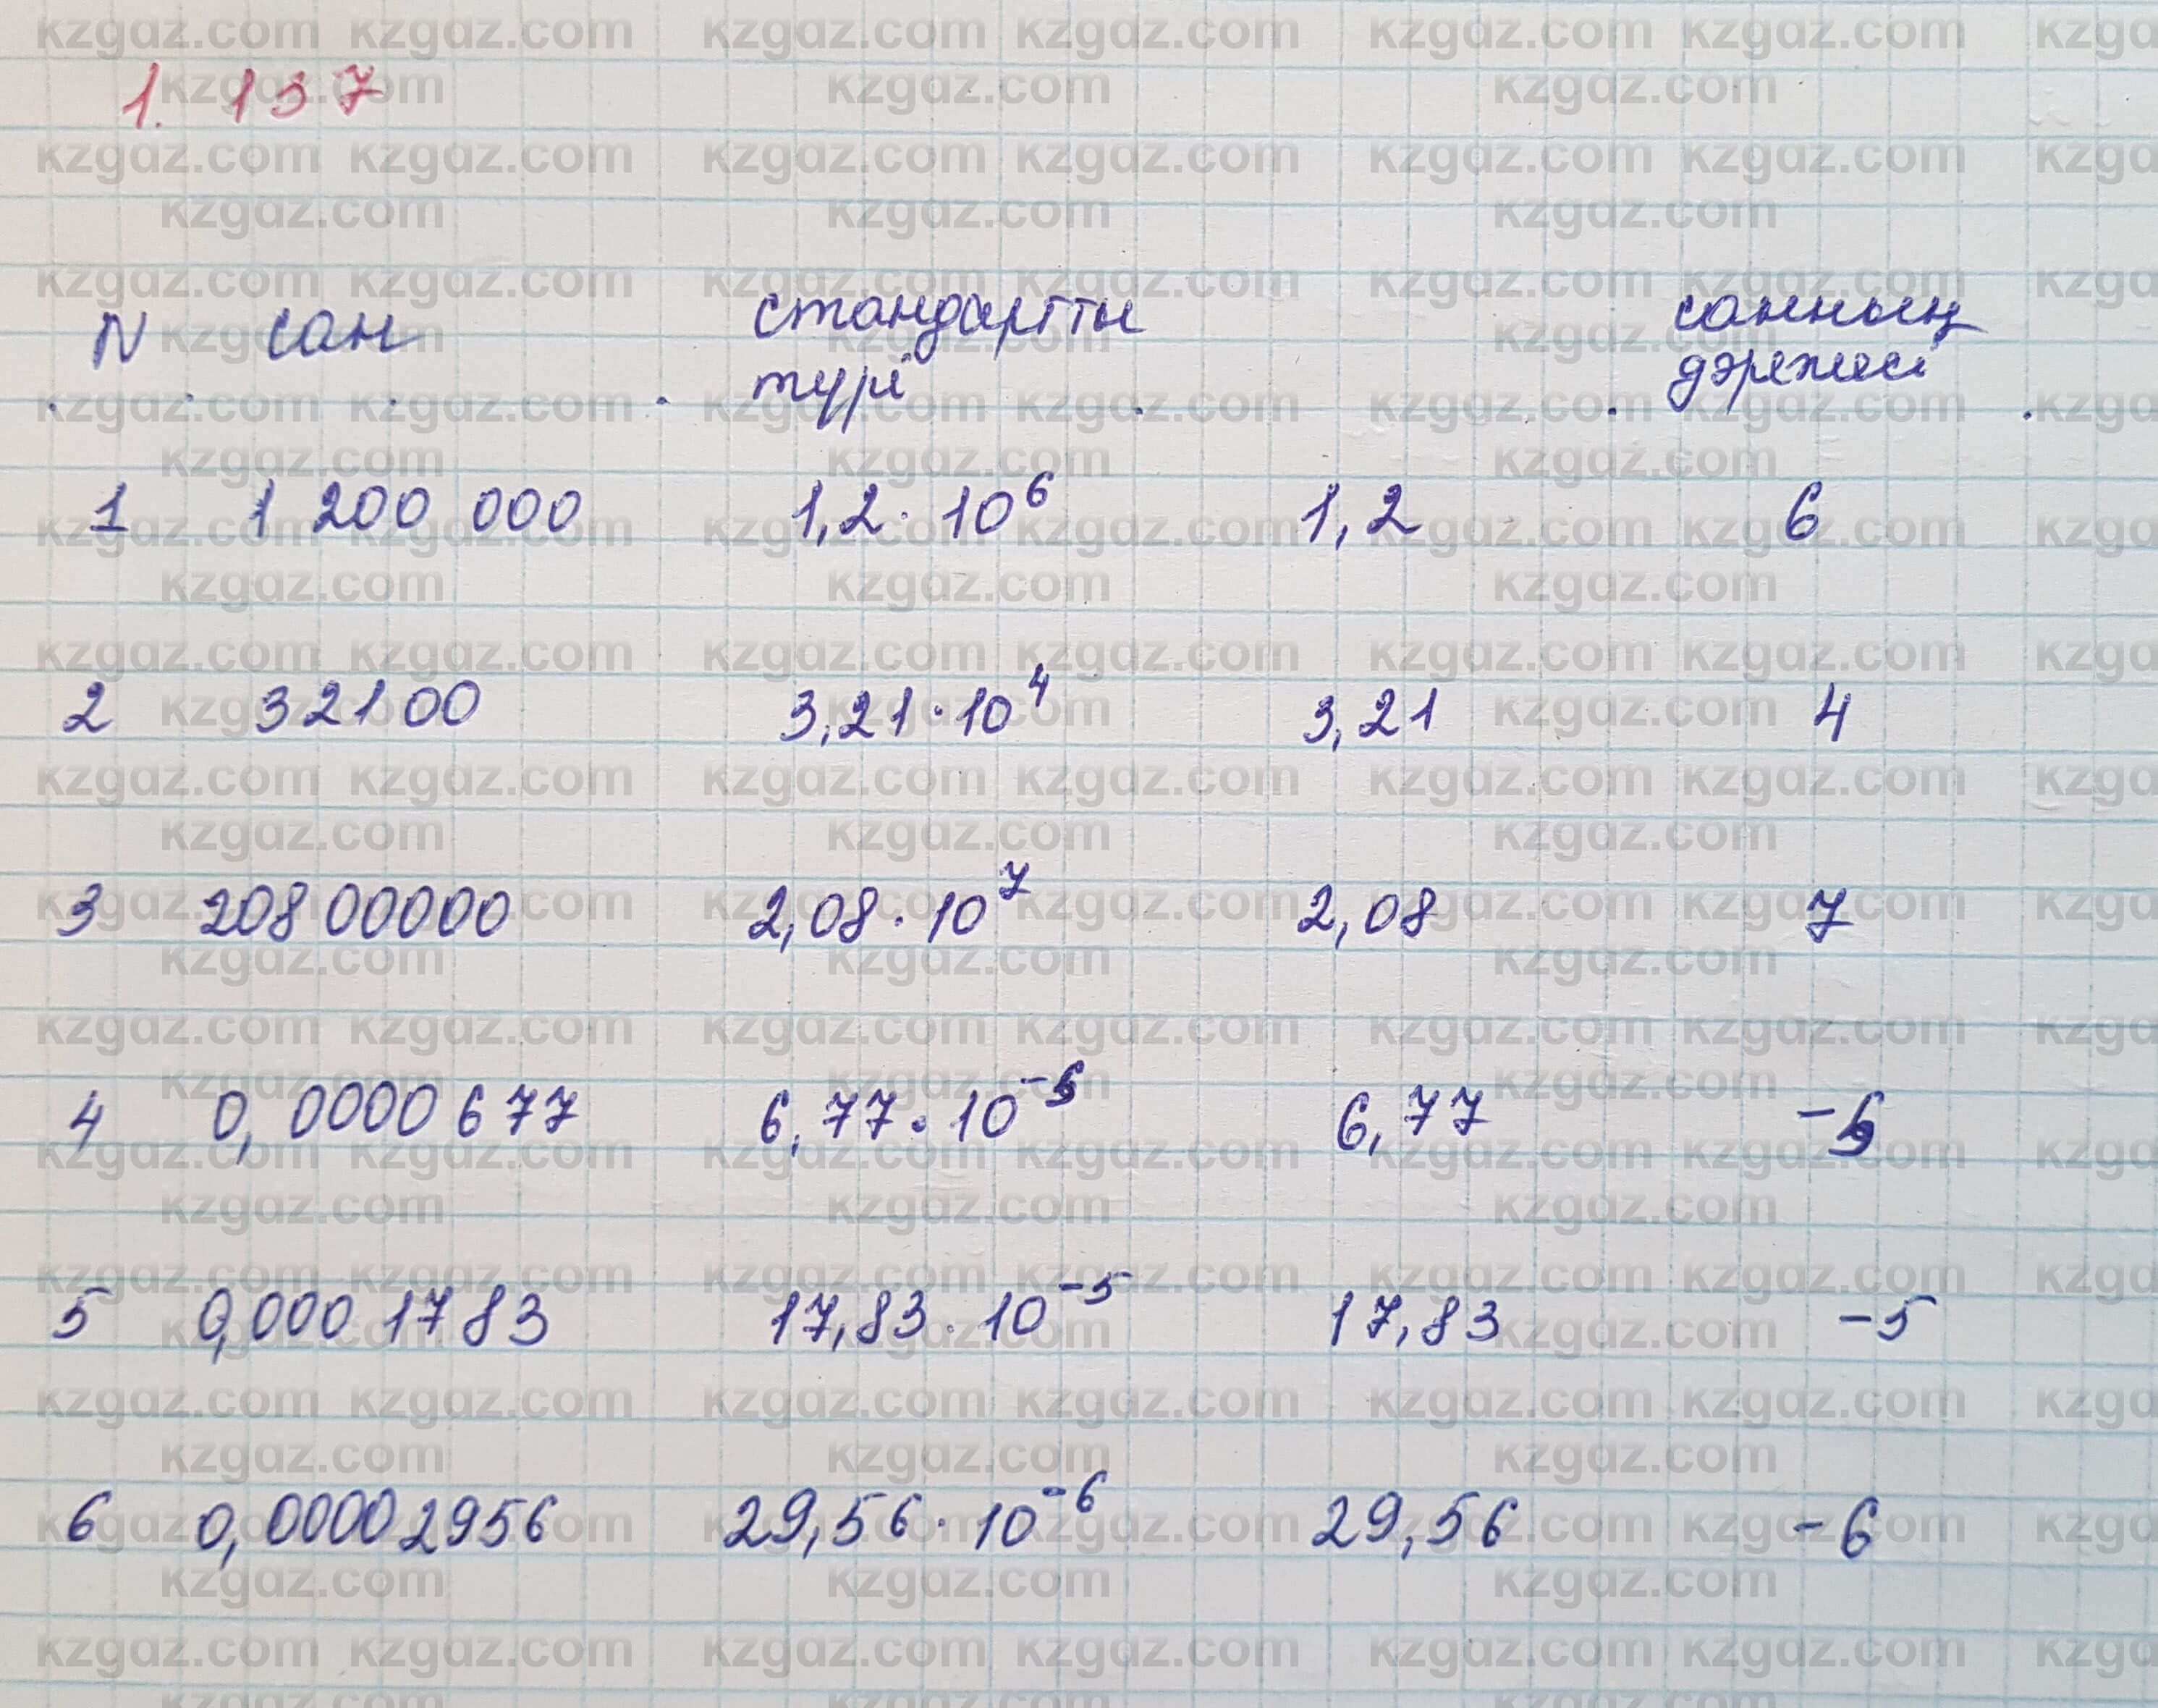 1. 137
N сан стандартты санның
түрі дәрежесі
1 1 200 000 1,2 · 10⁶ 1,2 6
2 32100 3,21 · 10⁴ 3,21 4
3 20800000 2,08 · 10⁷ 2,08 7
4 0,0000677 6,77 · 10⁻⁵ 6,77 -5
5 0,0001783 17,83 · 10⁻⁵ 17,83 -5
6 0,00002956 29,56 · 10⁻⁶ 29,56 -6
kzgaz.com